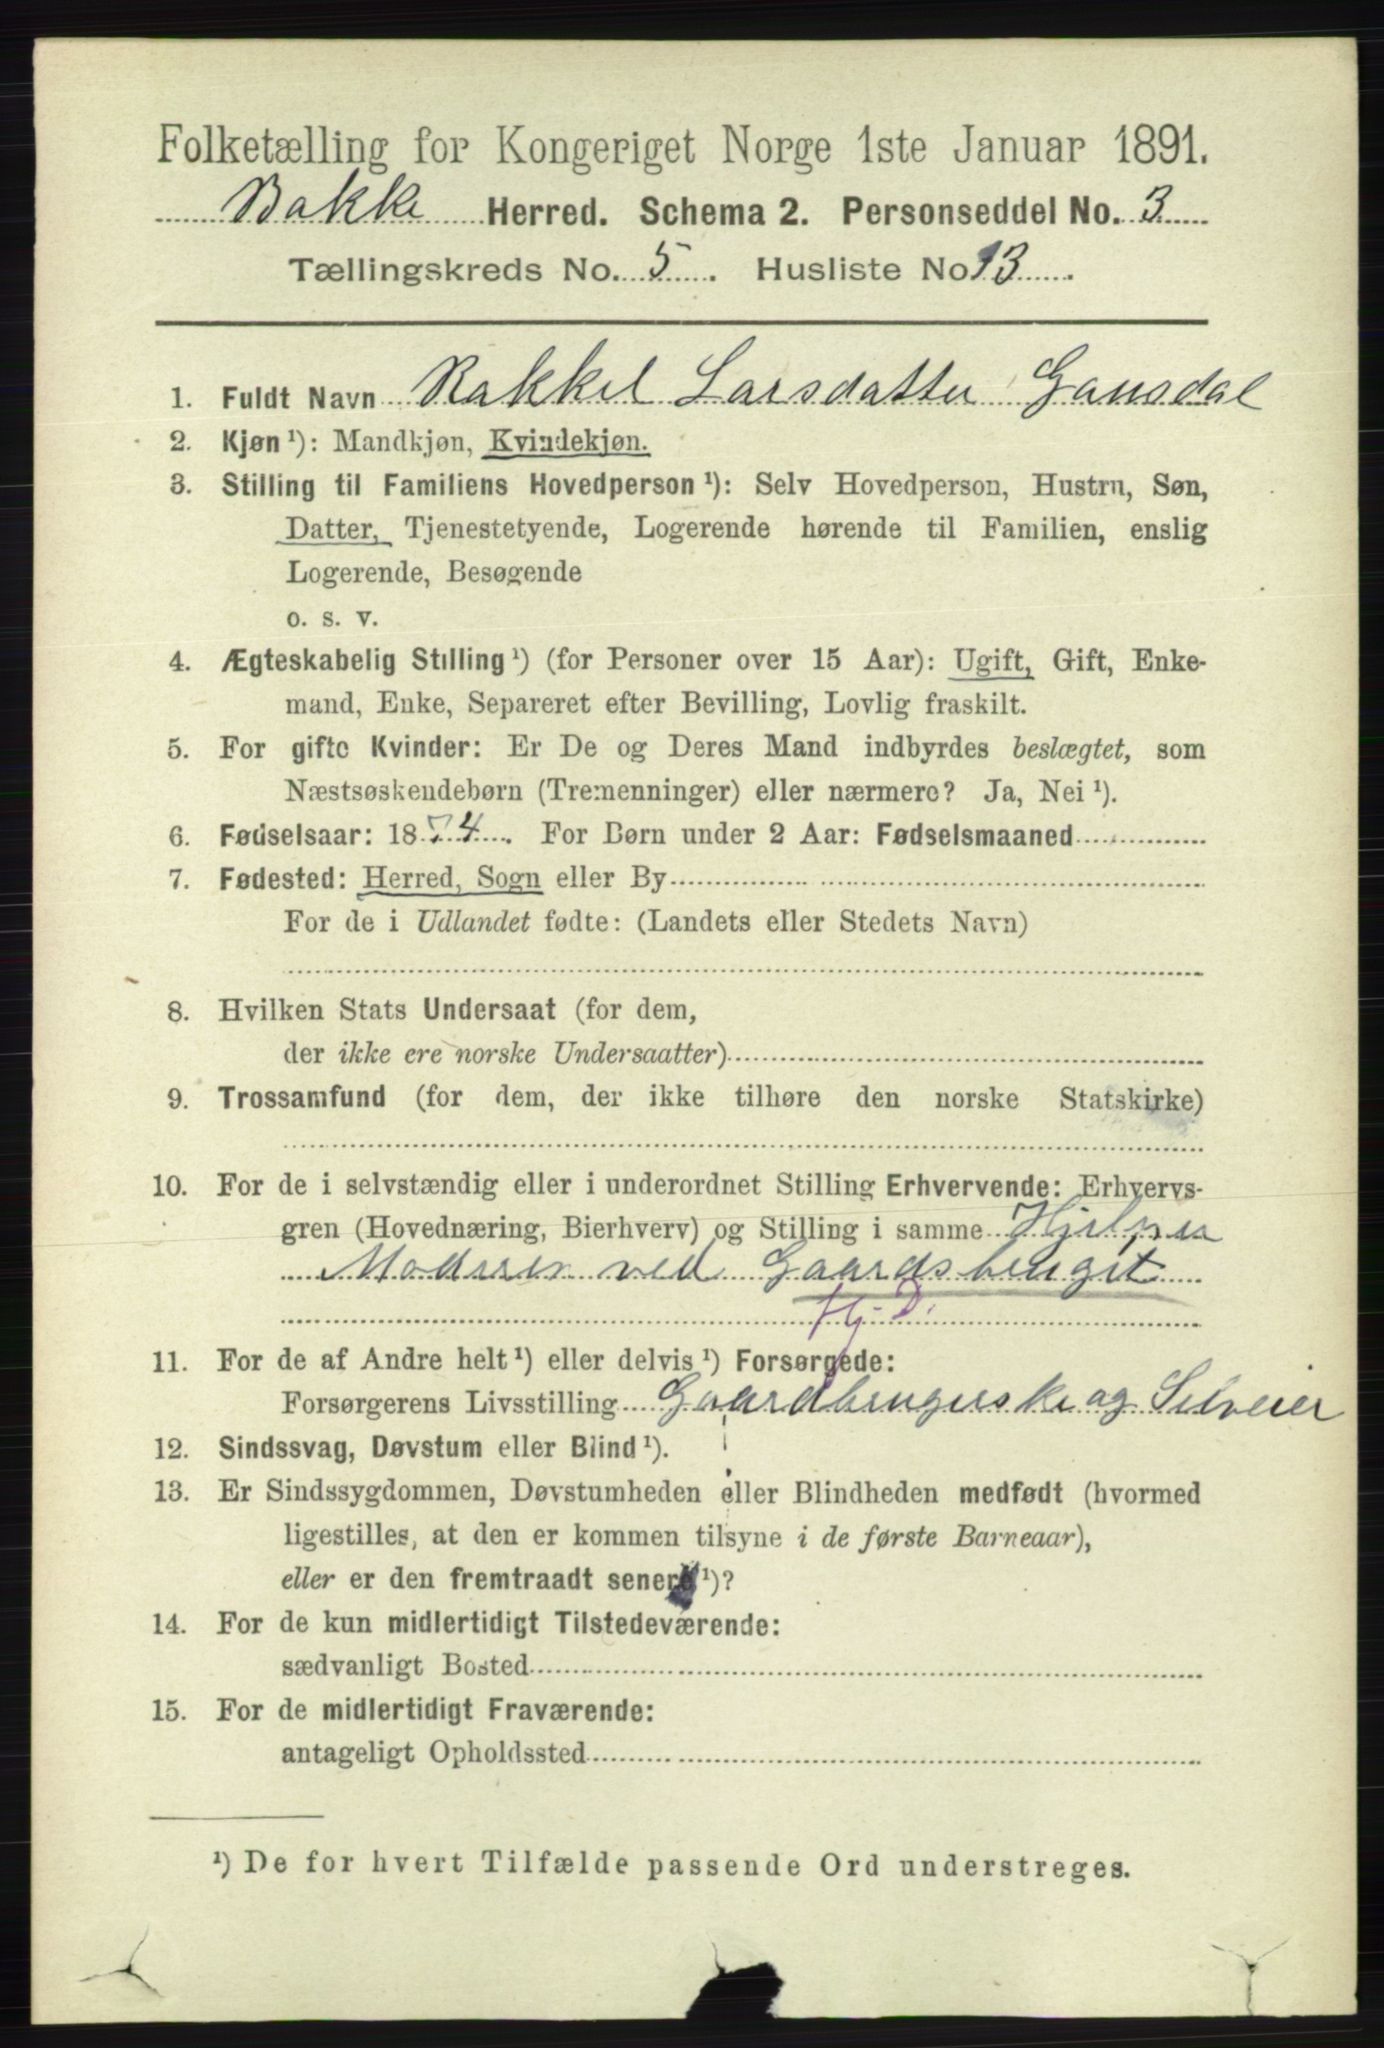 Folketælling for Kongeriget Norge 1ste Januar 1891.
Bakke Herred. Schema 2. Personseddel No. 3
Tællingskreds No. 5. Husliste No 13.
1. Fuldt Navn Rakkel Larsdatter Gausdal
2. Kjøn ¹): Mandkjøn, Kvindekjøn.
3. Stilling til Familiens Hovedperson ¹): Selv Hovedperson, Hustru, Søn,
Datter, Tjenestetyende, Logerende hørende til Familien, enslig
Logerende, Besøgende
o. s. v.
4. Ægteskabelig Stilling ¹) (for Personer over 15 Aar): Ugift, Gift, Enke-
mand, Enke, Separeret efter Bevilling, Lovlig fraskilt.
5. For gifte Kvinder: Er De og Deres Mand indbyrdes beslægtet, som
Næstsøskendebørn (Tremenninger) eller nærmere? Ja, Nei ¹).
6. Fødselsaar: 1874. For Børn under 2 Aar: Fødselsmaaned
7. Fødested: Herred, Sogn eller By
For de i Udlandet fødte: (Landets eller Stedets Navn)
8. Hvilken Stats Undersaat (for dem,
der ikke ere norske Undersaatter)
9. Trossamfund (for dem, der ikke tilhøre den norske Statskirke)
10. For de i selvstændig eller i underordnet Stilling Erhvervende: Erhvervs-
gren (Hovednæring, Bierhverv) og Stilling i samme Hjelper
Moderen ved Gaardsbruget
Hj. D.
11. For de af Andre helt ¹) eller delvis ¹) Forsørgede:
Forsørgerens Livsstilling Gaardbrugerske og Selveier
12. Sindssvag, Døvstum eller Blind ¹).
13. Er Sindssygdommen, Døvstumheden eller Blindheden medfødt (hvormed
ligestilles, at den er kommen tilsyne i de første Barneaar),
eller er den fremtraadt senere ¹)?
14. For de kun midlertidigt Tilstedeværende:
sædvanligt Bosted
15. For de midlertidigt Fraværende:
antageligt Opholdssted
¹) De for hvert Tilfælde passende Ord understreges.